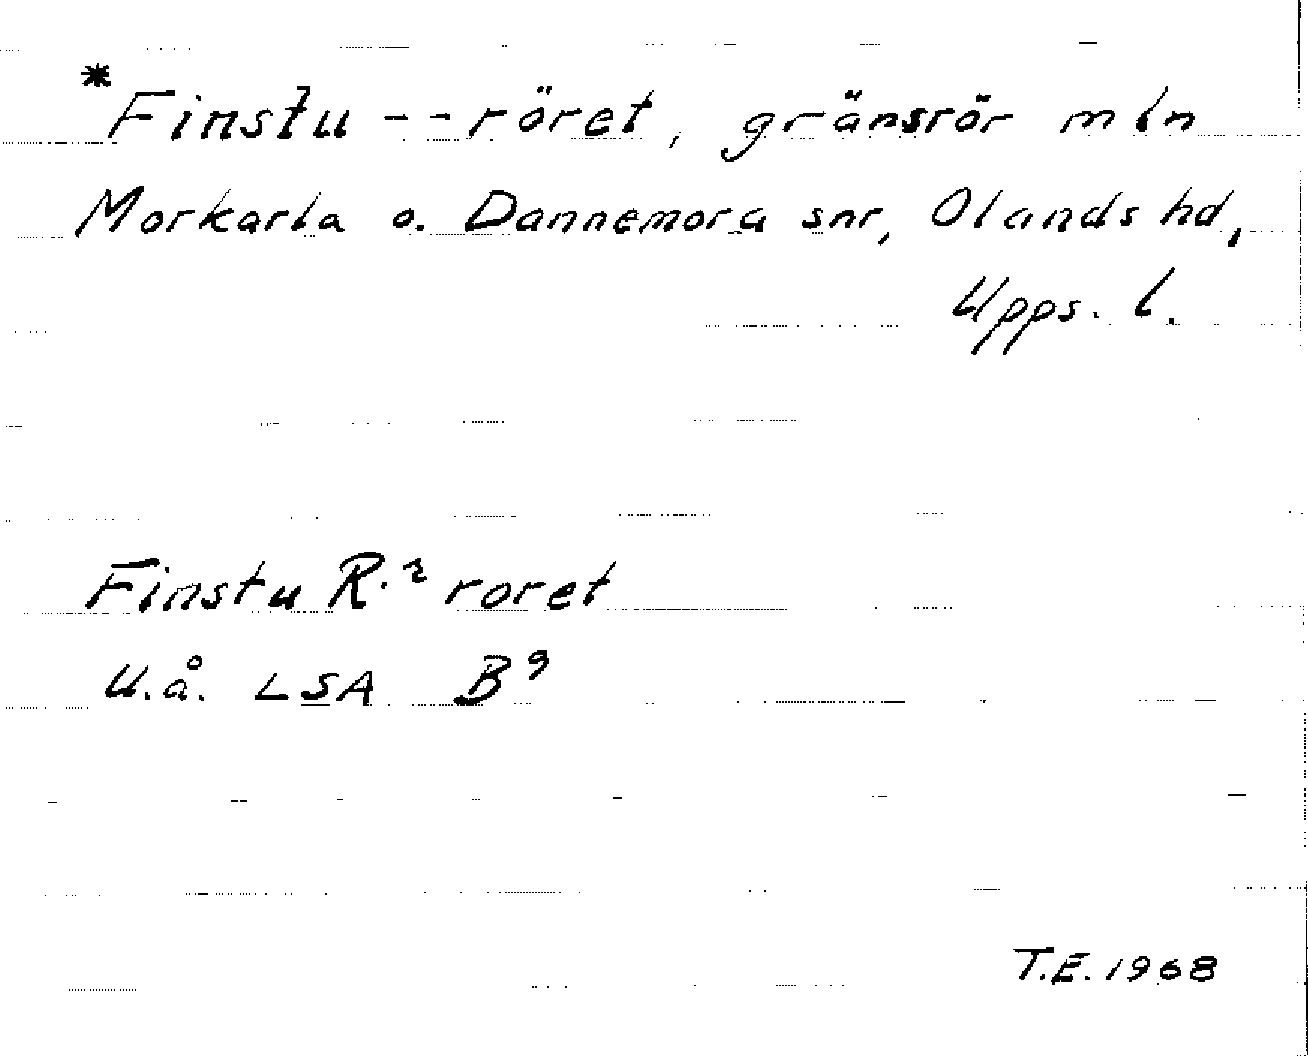 *Finstu--röret, gränsrör mln
Morkarla o. Dannemora snr, Olands hd,
Upps. l.
Finstu R.r roret
U.å. LSA B9
T.E. 1968